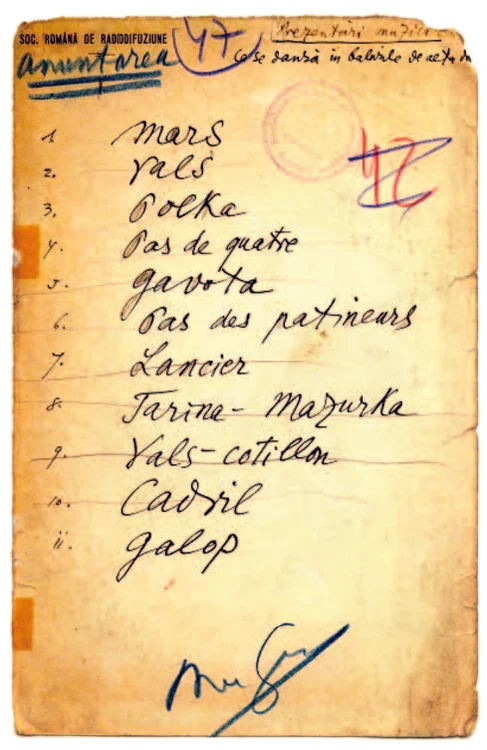 SOC. ROMÂNĂ DE RADIODIFUZIUNE
47
Prezentări muzica
anunțarea
Ce se dansa în balurile de
47
1. Marș
2. Vals
3. Polka
4. Pas de quatre
5. Gavota
6. Pas des patineurs
7. Lancier
8. Țarina - Mazurka
9. Vals-cotillon
10. Cadril
11. Galop